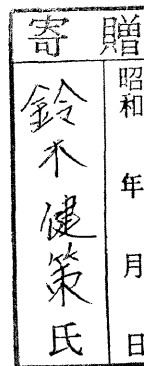 寄贈
昭和　年　月　日
鈴木健策氏